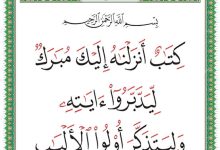 بِسْمِ اللَّهِ الرَّحْمَٰنِ الرَّحِيمِ
كِتَٰبٌ أَنزَلْنَٰهُ إِلَيْكَ مُبَٰرَكٌ
لِّيَدَّبَّرُوٓا۟ ءَايَٰتِهِۦ
وَلِيَتَذَكَّرَ أُو۟لُوا۟ ٱلْأَلْبَٰبِ